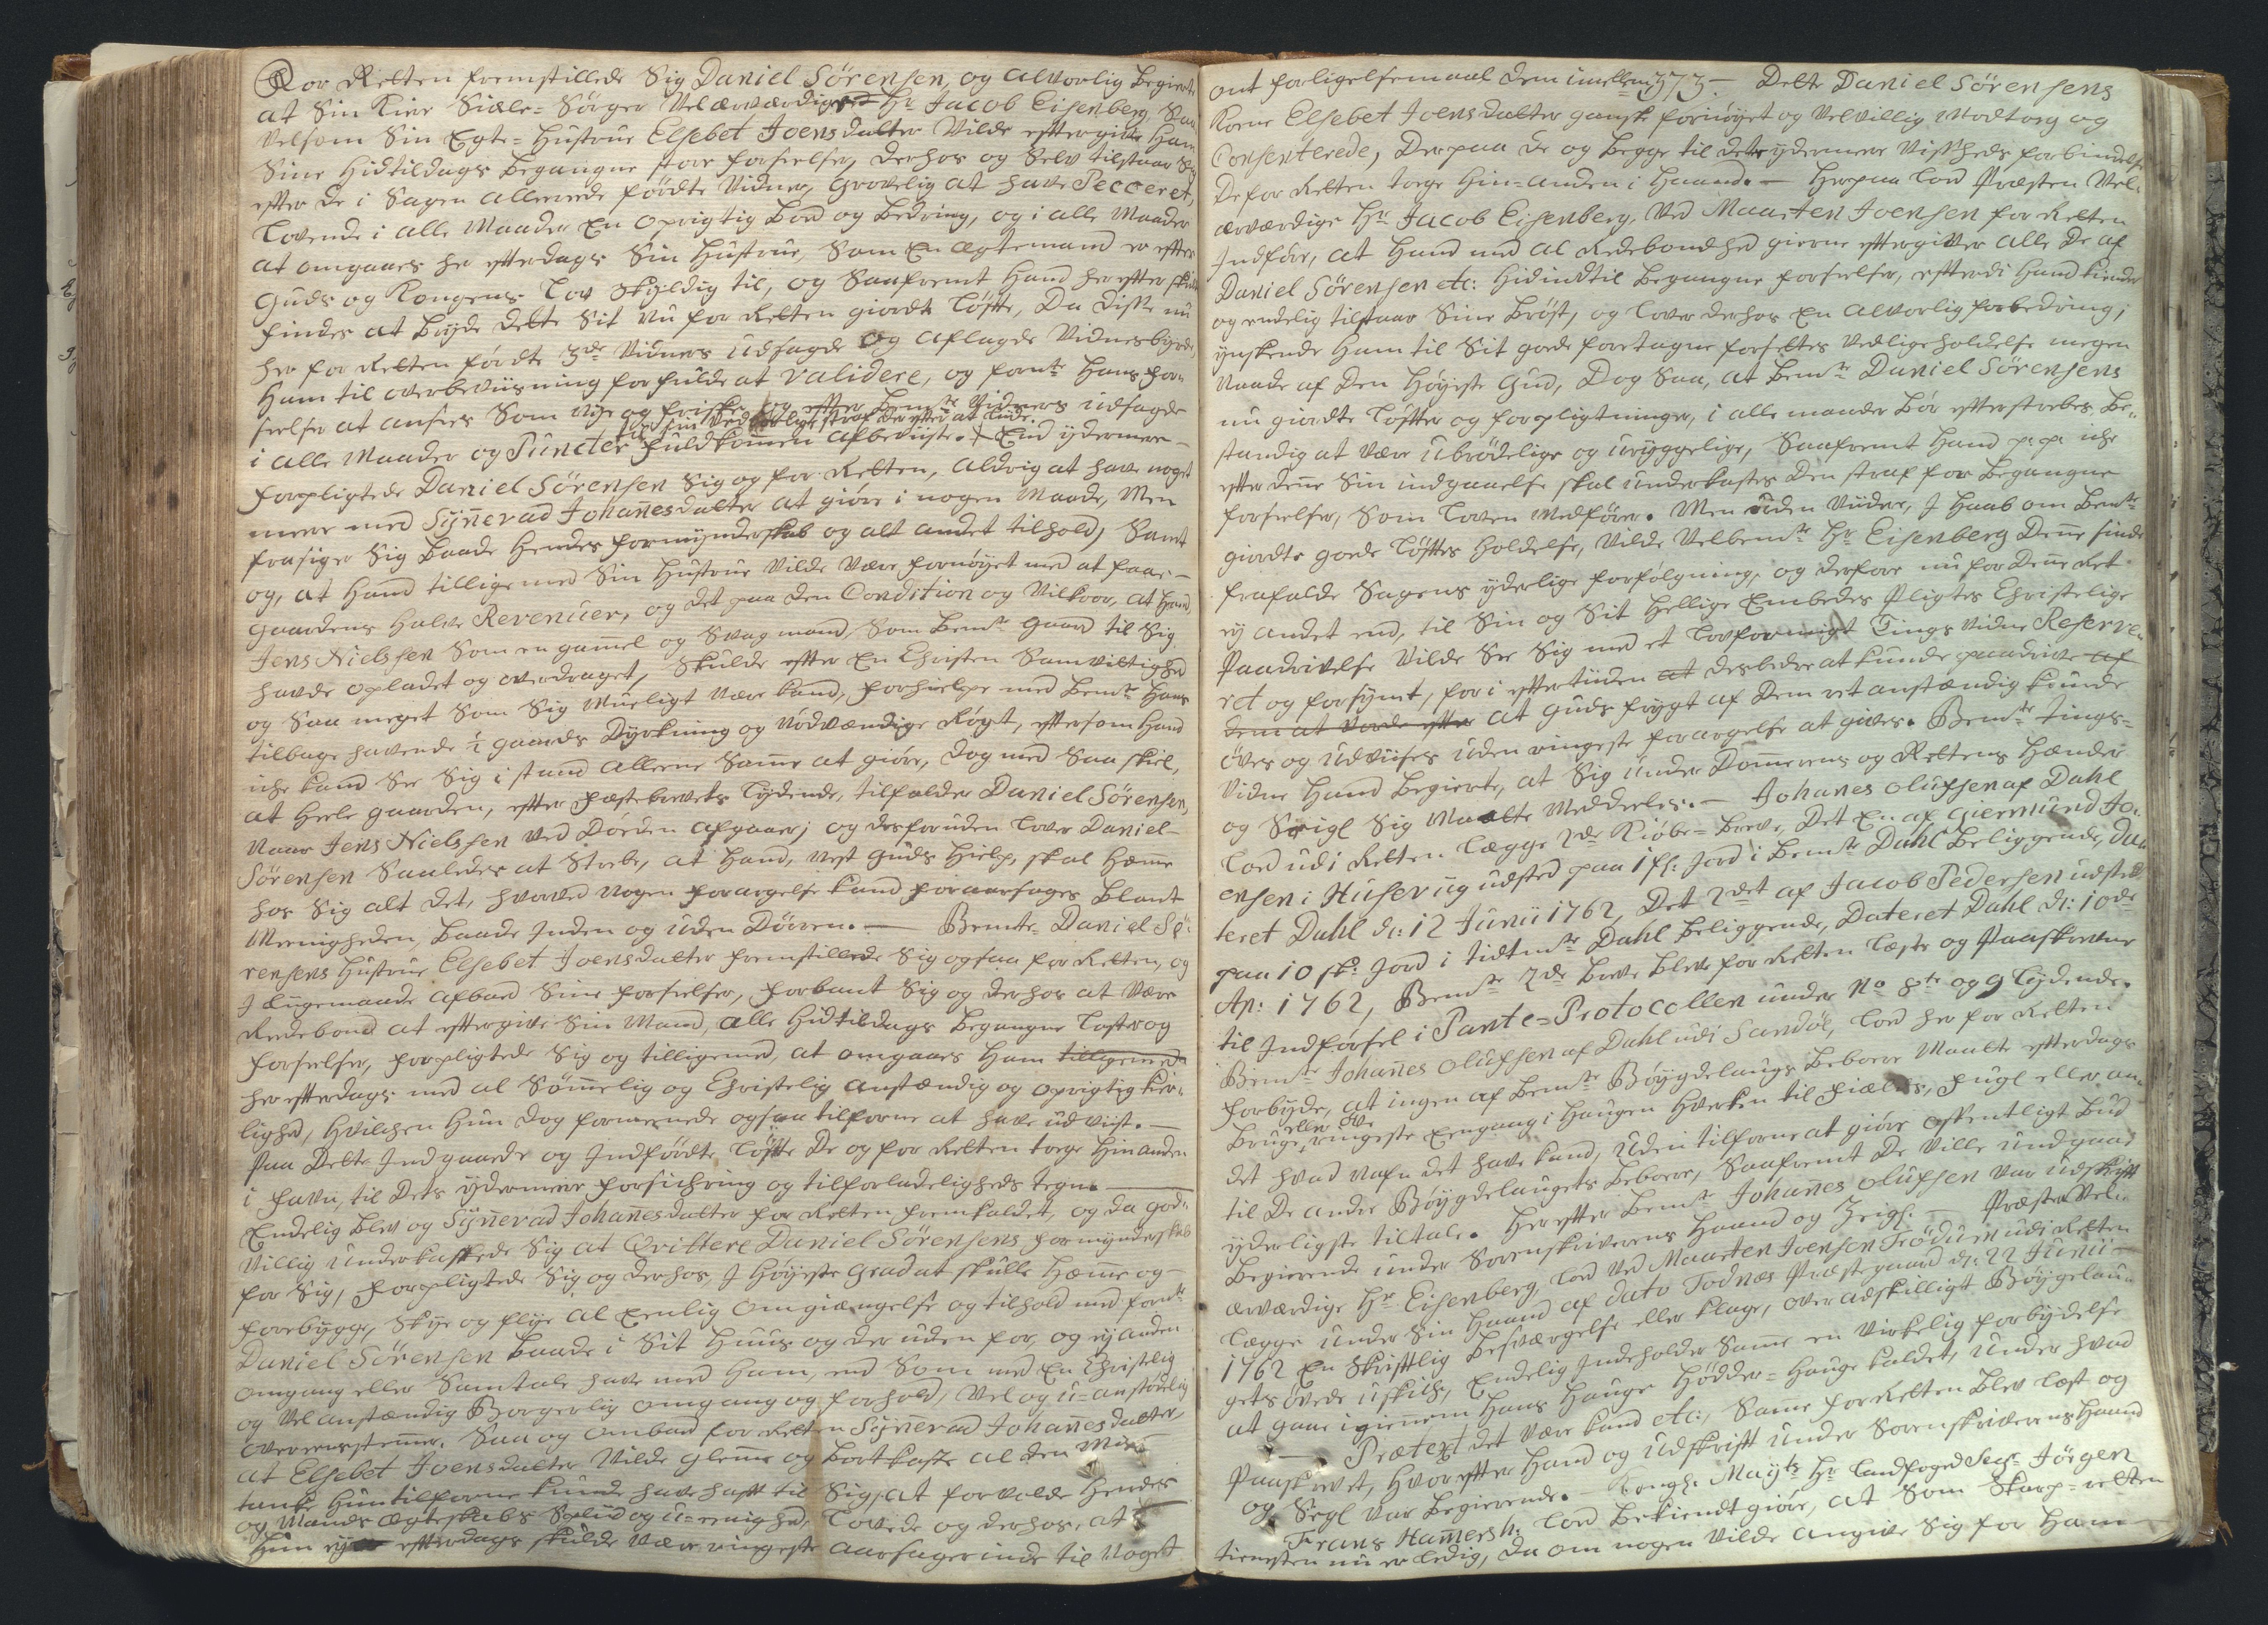 For Retten fremstillede Sig Daniel Sörensen, og alvorlig begierte
at Sin Kiere Siæle-Sörger Velærværdige Hr Jacob Eisenberg, Saa
Velsom Sin Egte-Hustrue Elsebet Joensdatter Vilde eftergive Ham
Sine hidtildags begangne store forseelser, derhos og Selv tilstaar Sig
efter de i Sagen allerede fördte Vidner, grovelig at have Pecceret,
Lovende i alle Maader En oprigtig Bod og Bedring, og i alle Maader
at omgaaes her efterdags Sin Hustrue, Som En ægtemand er efter
Guds og Kongens Lov Skyldig til, og Saafremt Hand herefter skulle
findes at bryde dette Sit nu for Retten giordte Löfte, da disse nu
her for Retten fördte 3de Vidners Udsagde og aflagde Vidnesbyrde,
Ham til overbeviisning forfulde at validere, og formte Hans for-
seelser at ansees Som nye og friske, og efter bemte Vidners udsagde
til sin vedbörlige straf derefter at lide.
i alle Maader og Puncter fuldkommen afbeviiste. End ydermere
forpligtede Daniel Sörensen Sig og for Retten, aldrig at have noget
mere med Sÿnnerad Johannesdatter at giöre i nogen Maade, Men
frasiger Sig baade Hendes formynderskab og alt andet tilhold, Samt
og, at Hand tilligemed Sin Hustrue Vilde Være fornöyet med at faae
gaardens halve Revenuer, og det paa den Condition og Vilkaar, at Hand
Jens Nielssen Som en gammel og Svag mand, Som bemte gaard til Sig
havde opladet og overdraget, Skulde efter En Christen Samvittighed
og Saa meget Som Sig Mueligt Være kand, forhielpe med bemte Hans
tilbage havende ½ gaards Dyrkning og nödvændige Rögt, eftersom Hand
iche kand See Sig i stand alleene Samme at giöre, dog med Saa skiel,
at Heele gaarden, efter festebrevets lydende, tilfalder Daniel Sörensen,
Naar Jens Nielssen ved Döden afgaaer; og desforuden lover Daniel
Sörensen Saaledes at Stræbe, at Hand, nest Guds Hielp, skal Hæmme
hos Sig alt det, hvorved nogen forargelse kand foraarsages blant
Menigheden, baade Inden og uden Dörren. — Bemte Daniel Sö-
rensens Hustrue Elsebet Joensdatter fremstillede Sig ogsaa for Retten, og
I ligemaade afbad Sine forseelser, forbant Sig og derhos at Være
Redebond at eftergive Sin Mand, alle hidtildags begangne Laster og
forseelser, forpligtede Sig og tilligemed, at omgaaes Ham tilligemed
her efterdags med al Sömmelig og Christelig anstændig og oprigtig kier-
lighed, hvilchen Hun dog formeenede ogsaa tilforne at have udviist. —
Paa Dette Indgaaede og Indfördte Löfte De og for Retten toege Hinanden
i Favn, til dets ydermeere forsichring og tilforladeligheds tegn. —
Endelig blev og Sÿnnerad Johannesdatter for Retten fremkaldet, og da god-
villig underkastede Sig at Qvittere Daniel Sörensens formynderskab
for Sig, forpligtede Sig og derhos, I höyeste Grad at skulle Hæmme og
forebygge, Skye og flye al Eenlig omgiængelse og tilhold med formte
Daniel Sörensen baade i Sit Huus og der uden for, og ey anden
omgang eller Samtale have med Ham, end Som med En Christelig
og Velanstændig Borgerlig omgang og forhold, Vel og u-anstödelig
overeensstemmer. Saa og ombad for Retten Sÿnnerad Johannesdatter,
at Elsebet Joensdatter Vilde glemme og bortkaste al den Mis-
tanke Hun tilforne kunde have haft til Sig, at forvolde Hendes
og Mands ægteskabs Splid og u-eenighed, Lovede og derhos, at
Hun ey efterdags skulde Være ringeste aarsagerinde til Noget
ont forligelsemaal dem imellem 373. — Dette Daniel Sörensens
Kone Elsebet Joensdatter gansk fornöyet og Velvillig Modtoeg og
Consenterede, Derpaa de og begge til dets ydermere Vissheds forbindelse
De for Retten toege Hin-anden i Haand. — Herpaa Lod Præsten Vel-
ærværdige Hr Jacob Eisenberg, ved Maarten Joensen for Retten
Indföre, at Hand med al Redebondhed gierne eftergiver alle De af
Daniel Sörensen etc: Hidindtil begangne forseelser, efterdi Hand kiender
og endelig tilstaar Sine Bröst, og lover derhos En alvorlig forbedring;
ynskende Ham til Sit goede foretagne forsettes Vedligeholdelse megen
Naade af den Höyeste Gud, Dog Saa, at bemte Daniel Sörensens
nu giordte Löfter og forpligtninger, i alle maader bör efterstrebes be-
standig at være ubrödelige og uryggelige, Saafremt Hand pp iche
efter denne Sin indgaaelse skal underkastes den straf for begangne
forseelser, Som Loven Medförer. Men uden Videre, I Haab om bemte
giordte goede Löftes Holdelse, Vilde Velbemte Hr Eisenberg denne sinde
frafalde Sagens yderlige forfölgning, og derfore nu for denne Ret
ey andet end, til Sin og Sit Hellige Embedes Pligtes Christelige
Paadrivelse Vilde See Sig med et lovformigt Tings Vidne Reserve-
ret og forsynt, for i eftertiiden at desbedre at kunde paadrive af
dem at vorde efter at Guds frygt af dem ret anstændig kunde
öves og udviises uden ringeste forargelse at gives. Bemte tings-
vidne Hand begierte, at Sig under Dommerens og Rettens Hænder
og Seigl Sig Maatte Meddeeles. — Johanes Olufsen af Dahl
Lod udi Retten Lægge 2de Kiöbe-breve, Det En af Giermund Jo-
ensen i Husevug udsted paa 1 sk: Jord i bemte Dahl beliggende, Da-
teret Dahl d: 12 Junii 1762, Det 2det af Jacob Pedersen udsted
paa 10 sk: Jord i tidtmte Dahl beliggende, Dateret Dahl d: 10de
Ap: 1762, Bemte 2de breve blev for Retten læste og Paaskrevne
til Indförsel i Pante-Protocollen under No 8te og 9 lydende.
Bemte Johannes Olufsen af Dahl udi Sandöe, Lod her for Retten
forbyde, at ingen af bemte Böygdelaugs Beboere Maatte efterdags
Bruge ringeste Eengang i Haugen Hverken til Fiælds, Fugl eller an-
det hvad nafn det have kand, uden tilforne at giöre offentligt bud
til De andre Böygdelaugets Beboere, Saafremt De ville undgaae
yderligste tiltale. Herefter bemte Johannes Olufsen var udskrift
begierende under Sorenskriverens Haand og Zeigl. — Præsten Vel-
ærværdige Hr Eisenberg, Lod ved Maarten Joensen Tröduum udi Retten
Lægge under Sin Haand af dato Todnæs Præstegaard d: 22 Junii
1762 En Skriftlig besværgelse eller klage, over adskilligt Böygelau-
gets övede uskik, Endelig Indeholder Samme en Virkelig forbydelse
at gaae igienem Hans Hauge Hödder-Hauge kaldet, under hvad
Prætext det være kand etc:, Samme for Retten blev læst og
Paaskrevet, Hvorefter Hand og udskrift under Sorenskriverens Haand
og Segl var begierende. — Kongl: Mayts Hr Landfoged Secr Jörgen
Frans Hammersh: Lod bekiendtgiöre, at Som Skarp-retter
tienesten nu er ledig, da om nogen Vilde angive Sig for Ham